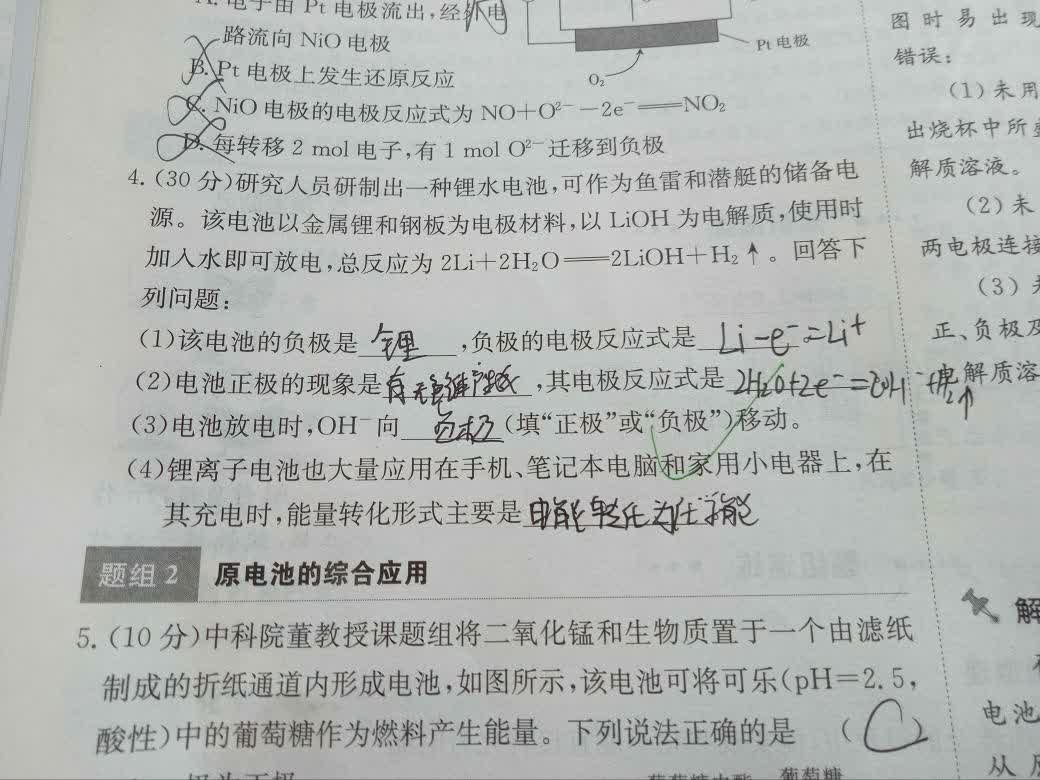 A. 电子由 Pt 电极流出,经外电
路流向 NiO 电极
Pt 电极
O₂
B. Pt 电极上发生还原反应
C. NiO 电极的电极反应式为 NO+O²⁻-2e⁻══NO₂
D. 每转移 2 mol 电子,有 1 mol O²⁻ 迁移到负极
4. (30 分)研究人员研制出一种锂水电池,可作为鱼雷和潜艇的储备电
源。该电池以金属锂和钢板为电极材料,以 LiOH 为电解质,使用时
加入水即可放电,总反应为 2Li+2H₂O══2LiOH+H₂↑。回答下
列问题:
(1)该电池的负极是 锂 ,负极的电极反应式是 Li-e⁻=Li⁺
(2)电池正极的现象是 有无 ,其电极反应式是 2H₂O+2e⁻=2OH⁻+H₂↑
(3)电池放电时,OH⁻向 负极 (填“正极”或“负极”)移动。
(4)锂离子电池也大量应用在手机、笔记本电脑和家用小电器上,在
其充电时,能量转化形式主要是 电能转化为化学能
题组 2 原电池的综合应用
5. (10 分)中科院董教授课题组将二氧化锰和生物质置于一个由滤纸
制成的折纸通道内形成电池,如图所示,该电池可将可乐(pH=2.5,
酸性)中的葡萄糖作为燃料产生能量。下列说法正确的是 ( C )
极为正极
葡萄糖
图时易出现
错误:
(1)未用
出烧杯中所
解质溶液。
(2)未
两电极连接
(3)
正、负极及
电解质溶
解
电池
从